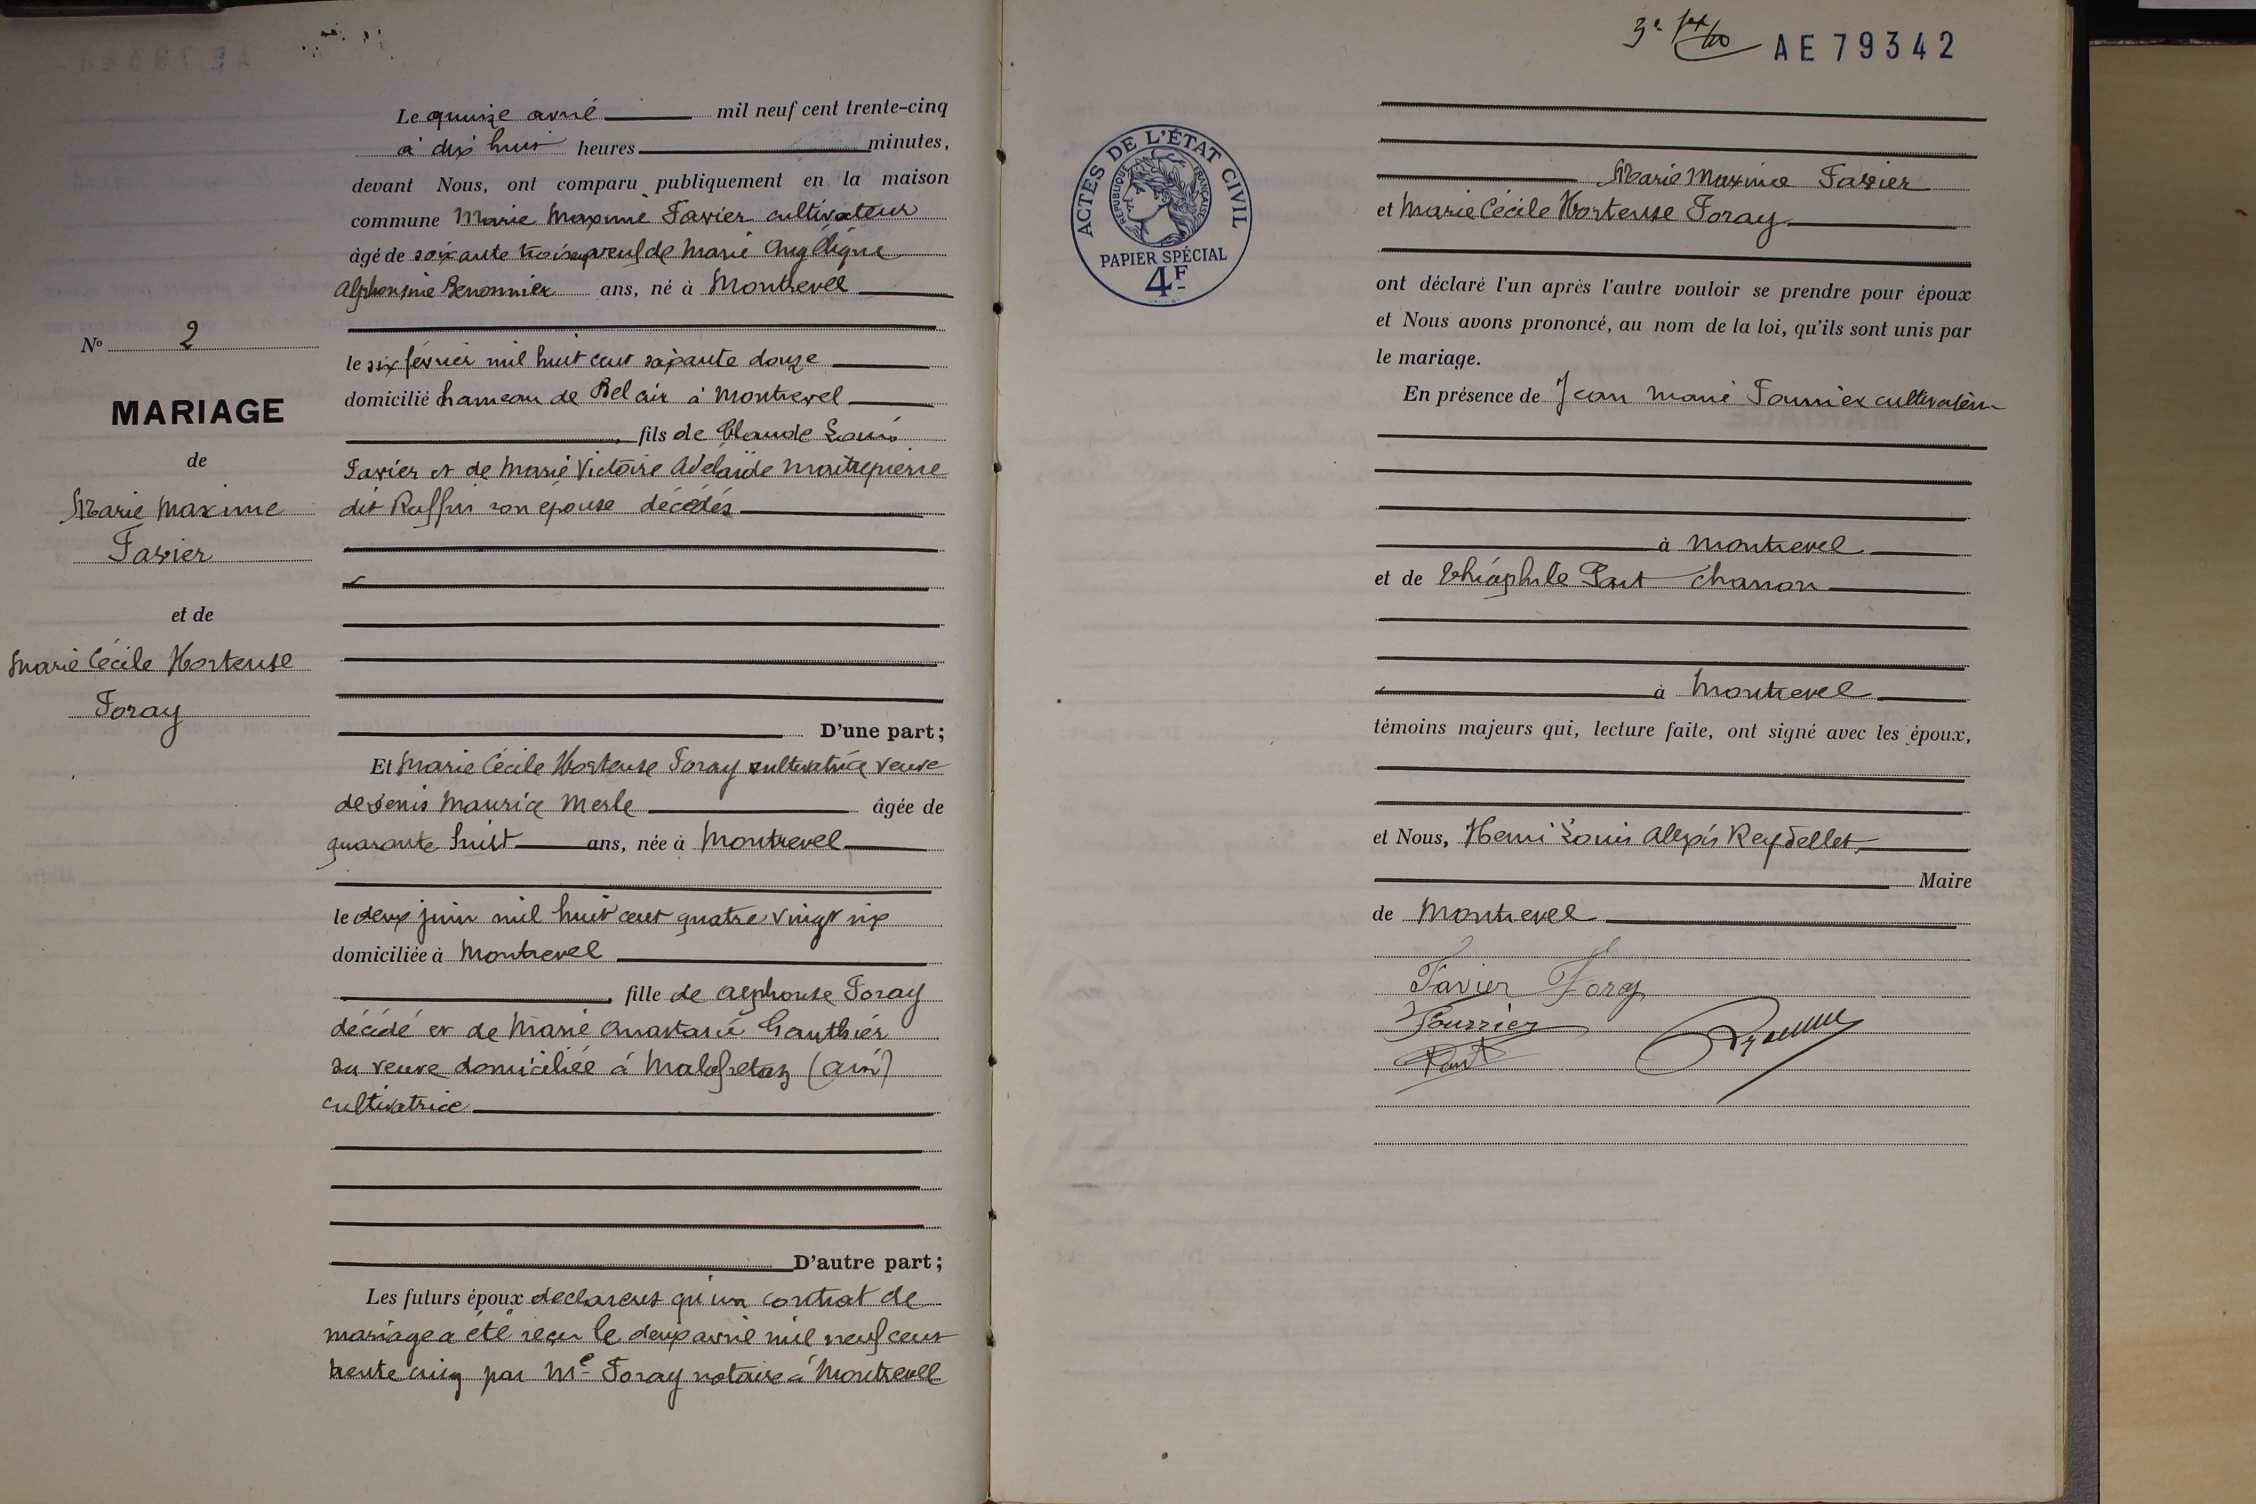 Le quinze avril mil neuf cent trente-cinq
à dix huit heures minutes,
devant Nous, ont comparu publiquement en la maison
commune Marie Maxime Favier cultivateur
âgé de soixante trois veuf de Marie Angélique
Alphonsine Renonnier ans, né à Montrevel
le six février mil huit cent soixante douze
domicilié hameau de Bel air à Montrevel
fils de Claude Louis
Favier et de Marie Victoire Adélaïde Montrepierre
dit Ruffin son épouse décédés
D'une part;
Et Marie Cécile Hortense Foray cultivatrice veuve
de Denis Maurice Merle âgée de
quarante huit ans, née à Montrevel
le deux juin mil huit cent quatre vingt six
domiciliée à Montrevel
fille de Alphonse Foray
décédé et de Marie Anastasie Gauthier
sa veuve domiciliée à Malafretaz (Ain)
cultivatrice
D'autre part;
Les futurs époux déclarent qu'un contrat de
mariage a été reçu le deux avril mil neuf cent
trente cinq par Me Foray notaire à Montrevel
No 2
MARIAGE
de
Marie Maxime
Favier
et de
Marie Cécile Hortense
Foray
AE79342
ACTES DE L'ÉTAT CIVIL
RÉPUBLIQUE FRANÇAISE
PAPIER SPÉCIAL
4F
Marie Maxime Favier
et Marie Cécile Hortense Foray
ont déclaré l'un après l'autre vouloir se prendre pour époux
et Nous avons prononcé, au nom de la loi, qu'ils sont unis par
le mariage.
En présence de Jean Marie Fournier cultivateur
à Montrevel
et de Théophile Paut charron
à Montrevel
témoins majeurs qui, lecture faite, ont signé avec les époux,
et Nous, Henri Louis Alexis Reydellet
Maire
de Montrevel
Favier Foray
Fournier
Paut